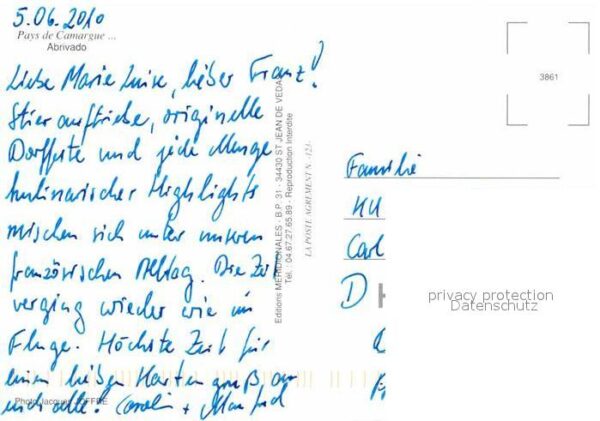 5.06.2010
Pays de Camargue ...
Abrivado
Liebe Marie Luise, lieber Franz!
Stierauftriebe, originelle
Dorffeste und jede Menge
kulinarischer Highlights
mischen sich unter unseren
französischen Alltag. Die Zeit
verging wieder wie im
Fluge. Höchste Zeit für
einen lieben Kartengruß an
euch alle! Carolin + Manfred
Photo Jacques JOFFRE
Editions MERIDIONALES - B.P. 31 - 34430 ST JEAN DE VEDA
Tel. : 04.67.27.65.89 - Reproduction interdite
LA POSTE AGREMENT N° 123
3861
Familie
Carl
D
privacy protection
Datenschutz